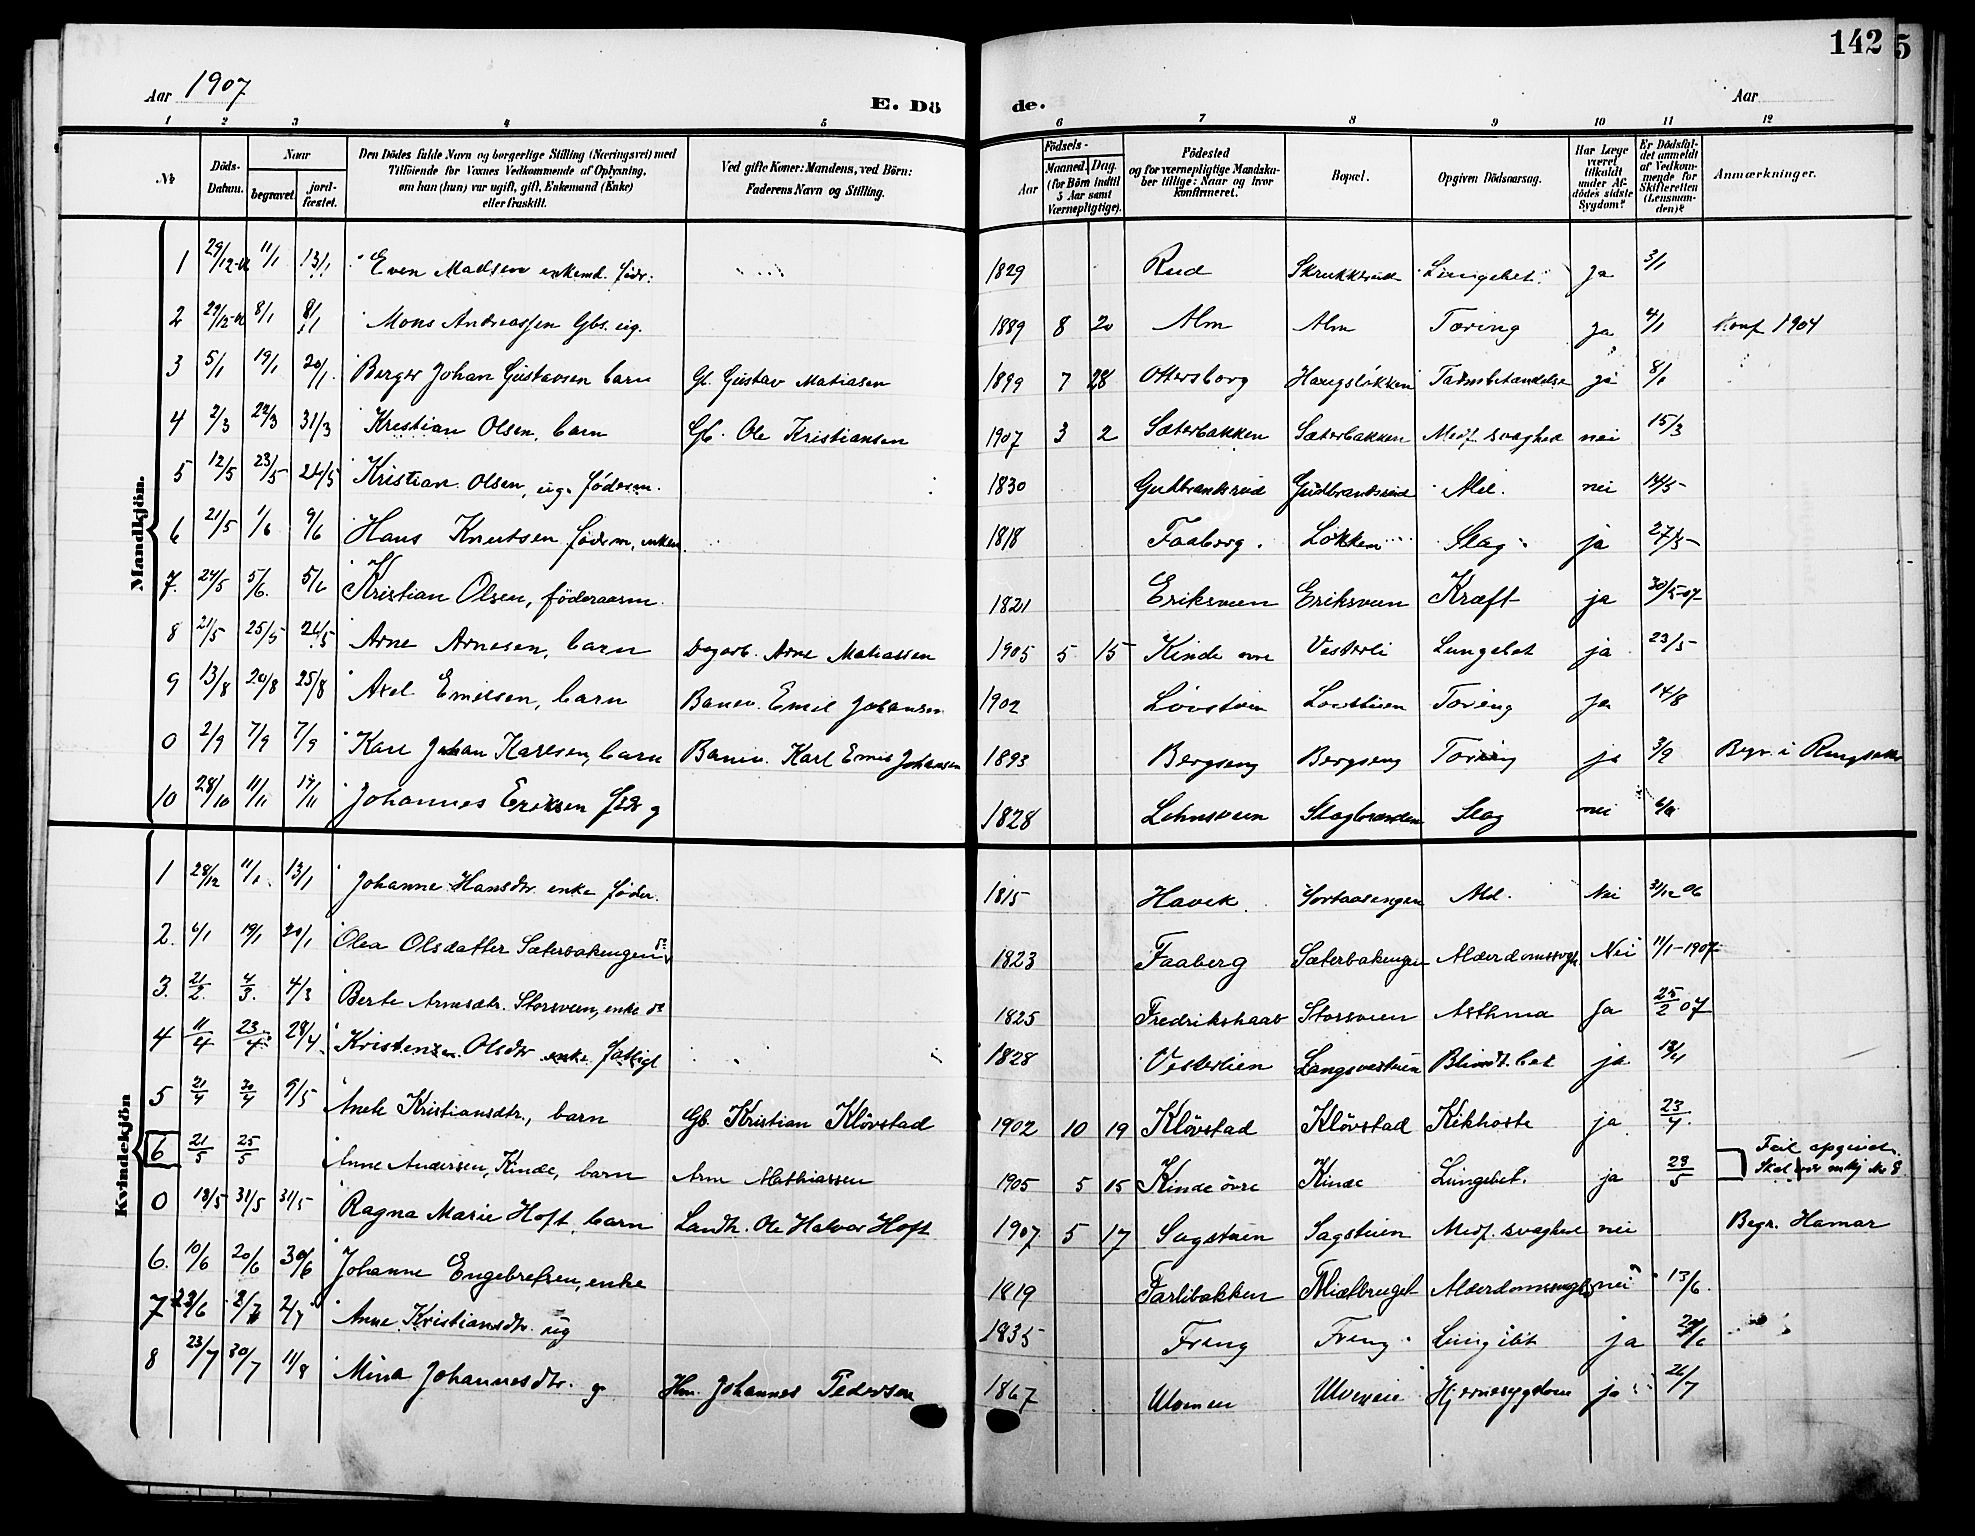 142 5
Aar 1907 E. Dö de. Aar
1 2 3 4 5 6 7 8 9 10 11 12
№ Döds-Datum. Naar begravet. jordfæstet. Den Dödes fulde Navn og borgerlige Stilling (Næringsvei) med Tilföiende for Voxnes Vedkommende af Oplysning, om han (hun) var ugift, gift, Enkemand (Enke) eller fraskilt. Ved gifte Koner: Mandens, ved Börn: Faderens Navn og Stilling. Födsels- Aar Maaned. Dag. (for Börn indtil 5 Aar samt Værnepligtige). Födested og for værnepligtige Mandskaber tillige: Naar og hvor konfirmeret. Bopæl. Opgiven Dödsaarsag. Har Læge været tilkaldt under Afdödes sidste Sygdom? Er Dödsfaldet anmeldt af Vedkommende for Skifteretten (Lensmanden)? Anmærkninger.
Mandkjön.
1 29/12 11/1 13/1 Even Madsen enkemd. föder. 1829 Rud Skrukkerud Lungebet. ja 3/1
2 29/12 8/1 8/1 Mons Andreassen Gbs. ug. 1889 8 20 Alm Alm Tæring ja 4/1 Konf 1904
3 5/1 19/1 20/1 Berger Johan Gustavsen barn G. Gustav Matiasen 1899 7 28 Ottersborg Haugsløkken Tarmbetændelse ja 8/1
4 2/3 22/3 31/3 Kristian Olsen, barn Gb. Ole Kristiansen 1907 3 2 Sæterbakken Sæterbakken Medf. svaghed nei 15/3
5 12/5 23/5 24/5 Kristian Olsen, ug. föderm. 1830 Gudbrandsrud Gudbrandsrud Ald. nei 14/5
6 21/5 1/6 9/6 Hans Knutsen föderm, enkem. 1818 Faaberg. Løkken Slag ja 27/5
7. 24/5 5/6. 5/6 Kristian Olsen, föderaasm. 1821 Eriksveen Eriksveen Kræft ja 30/5-07
8 21/5 25/5 26/5 Arne Arnesen, barn Dagarb. Arne Matiassen 1905 5 15 Kinde øvre Vesterli Lungebet ja 23/5
9 13/8 20/8 25/8 Axel Emilsen, barn Banev. Emil Johansen 1902 Lövstuen Lövstuen Tæring ja 14/8
0 2/9 7/9 7/9 Karl Johan Karlsen, barn Banev. Karl Emil Johansen 1893 Bergseng Bergseng Tæring ja 3/9 Begr. i Ringsaker
10 28/10 11/11 17/11 Johannes Eriksen föder g 1828 Lehnsveen Slagbrænden Slag nei
Kvindekjön
1 28/12 11/1 13/1 Johanne Hansdtr enke föder. 1815 Havik Sortaasengen Ald. Nei 31/12 06
2. 6/1 19/1 20/1 Olea Olsdatter Sæterbakengen 1823 Faaberg Sæterbakengen Alderdomssvagh Nei 11/1-1907
3. 21/2. 4/3. 4/3 Berte Arnesdtr. Storsveen, enke 1825 Fredrikshaab Storsveen Asthma Ja 25/2 07
4 11/4 23/4 28/4 Kristensen Olsdtr enke fattigl 1828 Vesterlien Langsvestuen Blindt. bet ja 18/4
5 21/4 9/5 Anete Kristiansdtr., barn Gb. Kristian Klövstad 1902 10 19 Klövstad Klövstad Kikhoste ja 23/4.
6 21/5 25/5 Anne Andersen, Kinde, barn Arne Mathiassen 1905 5 15 Kinde övre Kinde Lungebet. ja 23/5 Feil opgivet. Skal være mkj No 8
0 18/5 31/5 31/5 Ragna Marie Hoft, barn Landh. Ole Halvor Hoft 1907 5 17 Sagstuen Sagstuen Medf. svaghed nei Begr. Hamar
6. 10/6 20/6 30/6 Johanne Engebretsen, enke 1819 Farlibakken Alderdomssvagh nei 13/6.
7 23/6 2/7 2/7 Anne Kristiansdtr. ug 1835 Freng Freng Lungebet ja
8 23/7 30/7 11/8 Mina Johannesdtr. g Hm. Johannes Pedersen 1867 Ulveneie Hjernesygdom ja 26/7